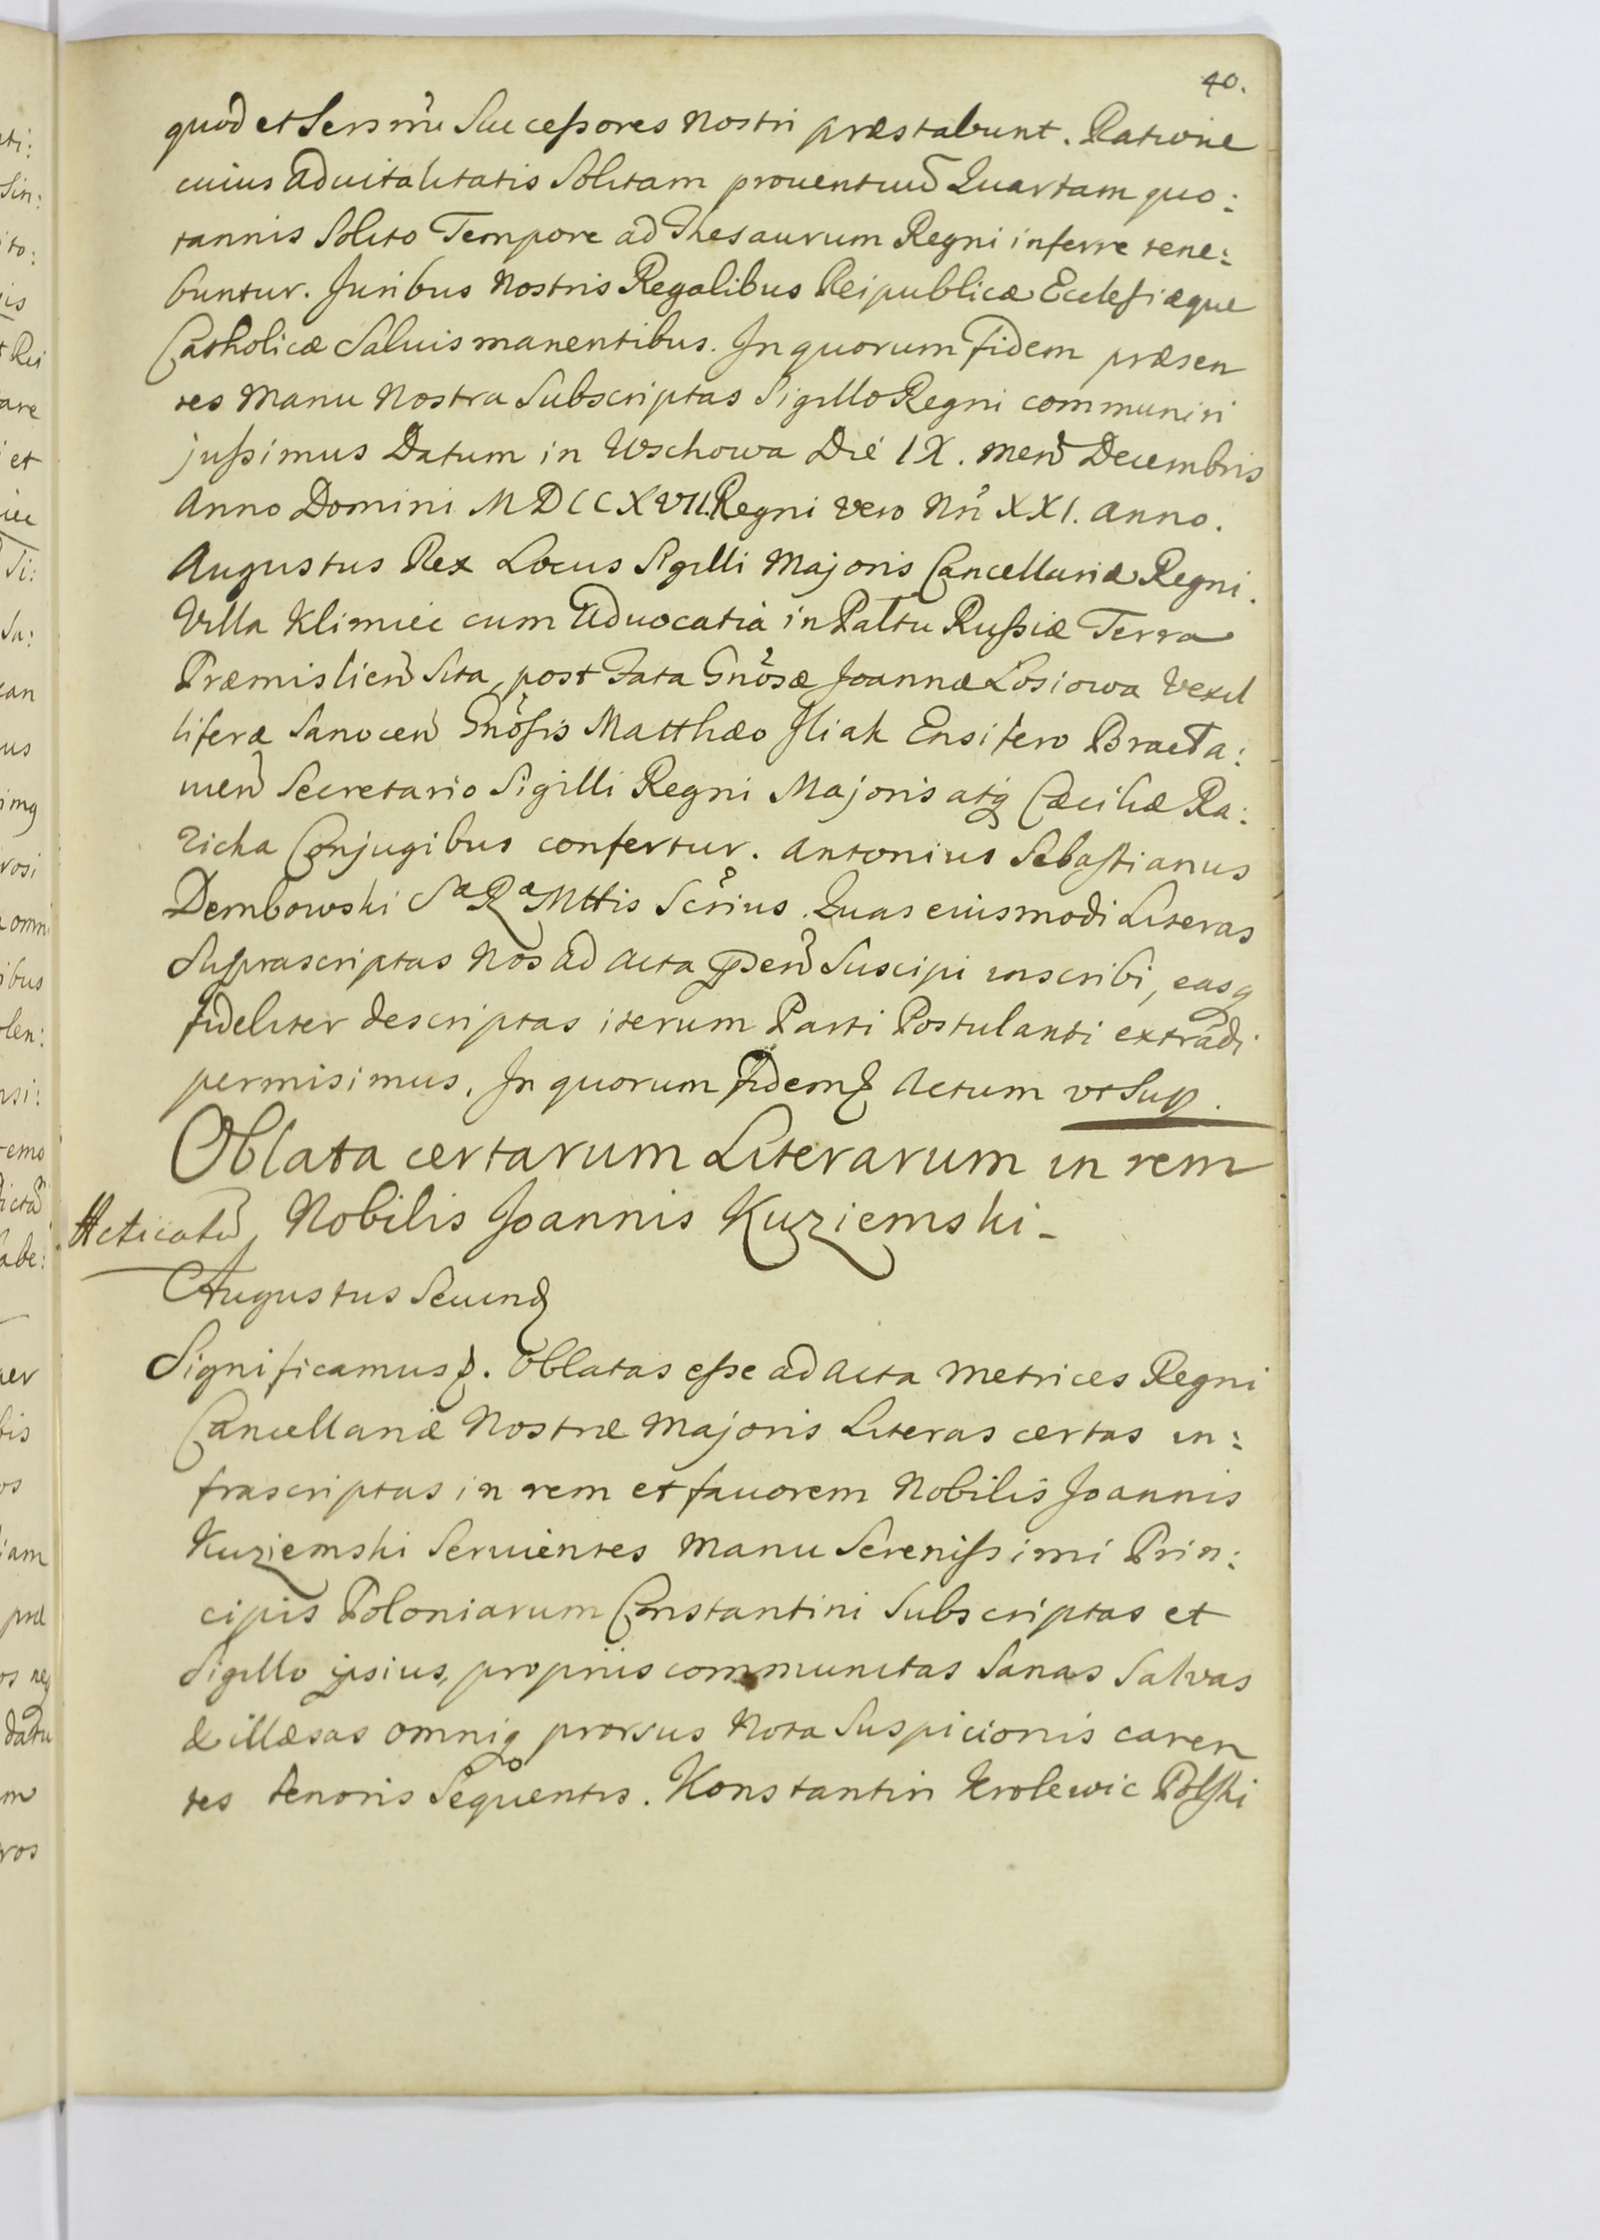 40.
quod et Sersmi Successores Nostri præstabunt. Ratione
cuius aduitalitatis Solitam prouentuu Quartam quo:
tannis Solito Tempore ad Thesaurum Regni inferre tene:
buntur. Juribus Nostris Regalibus Reipublicæ Ecclesiæque
Catholicæ Saluis manentibus. In quorum fidem præsen
tes Manu Nostra Subscriptas Sigillo Regni communiri
jussimus Datum in Wschowa Die IX. Men Decembris
Anno Domini MDCCXVII. Regni vero Nri XXI. anno.
Augustus Rex Locus Sigilli Majoris Cancellariæ Regni.
Villa Klimiec cum Aduocatia in Paltu Russiæ Terra
Præmislien Sita, post Fata Gnosæ Joannæ Łosiowa Vexil
liferæ Sanocen Gnosis Matthæo Iliak Ensifero Bracta:
uien Secretario Sigilli Regni Majoris atq Cæciliæ Ra:
zicka Conjugibus confertur. Antonius Sebastianus
Dembowski Sa Ra Mttis Scrius. Quas eiusmodi Literas
Suprascriptas Nos ad acta pden Suscipi inscribi, easq
fideliter descriptas iterum Parti Postulanti extradi
permisimus. In quorum fidem & Actum vt Sup.
Oblata certarum Literarum in rem
Acticatu Nobilis Joannis Kuziemski -
Augustus Secund
Significamus &. Oblatas esse ad acta Metrices Regni
Cancellariæ Nostræ Majoris Literas certas in:
frascriptas in rem et fauorem Nobilis Joannis
Kuziemski Seruientes Manu Serenissimi Prin:
cipis Poloniarum Constantini Subscriptas et
Sigillo ipsius, propriis communitas Sanas Salvas
& illæsas omniq prorsus Nota Suspicionis caren
tes tenoris Sequentis. Konstantin Krolewic Polski